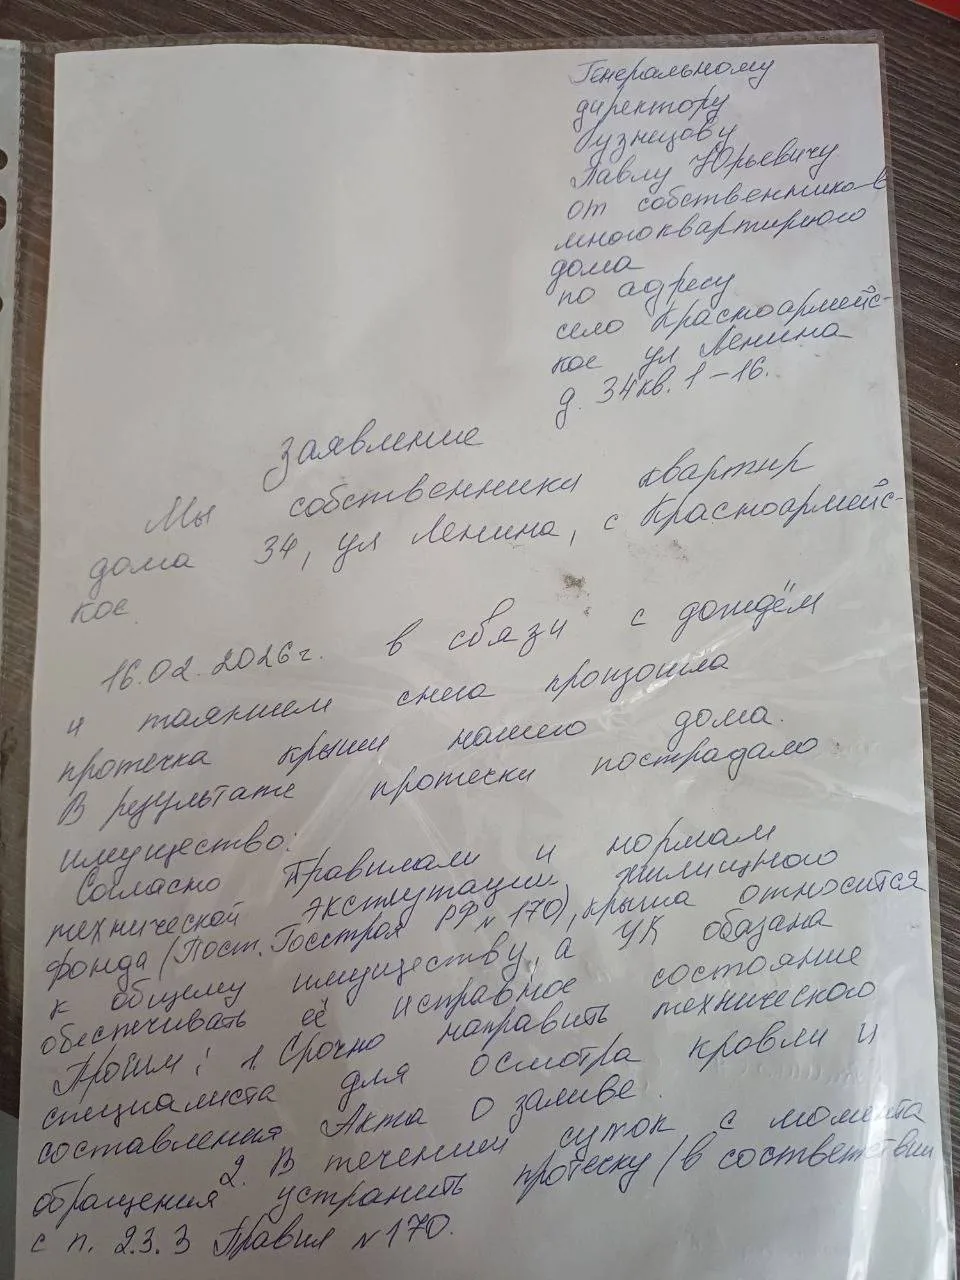 Генеральному
директору
Кузнецову
Павлу Юрьевичу
от собственников
многоквартирного
дома
по адресу
село Красноармейс-
кое ул Ленина
д. 34 кв. 1-16.
Заявление
Мы собственники квартир
дома 34, ул Ленина, с Красноармейс-
кое.
16.02.2026г. в связи с дождём
и таянием снега произошла
протечка крыши нашего дома.
В результате протечки пострадало
имущество:
Согласно Правилам и нормам
технической эксплутации жилищного
фонда (Пост. Госстроя РФ № 170), крыша относится
к общему имуществу, а УК обязана
обеспечивать её исправное состояние
Просим: 1. Срочно направить технического
специалиста для осмотра кровли и
составления Акта о заливе.
2. В течении суток с момента
обращения устранить протечку (в соответствии
с п. 2.3.3 Правил № 170.